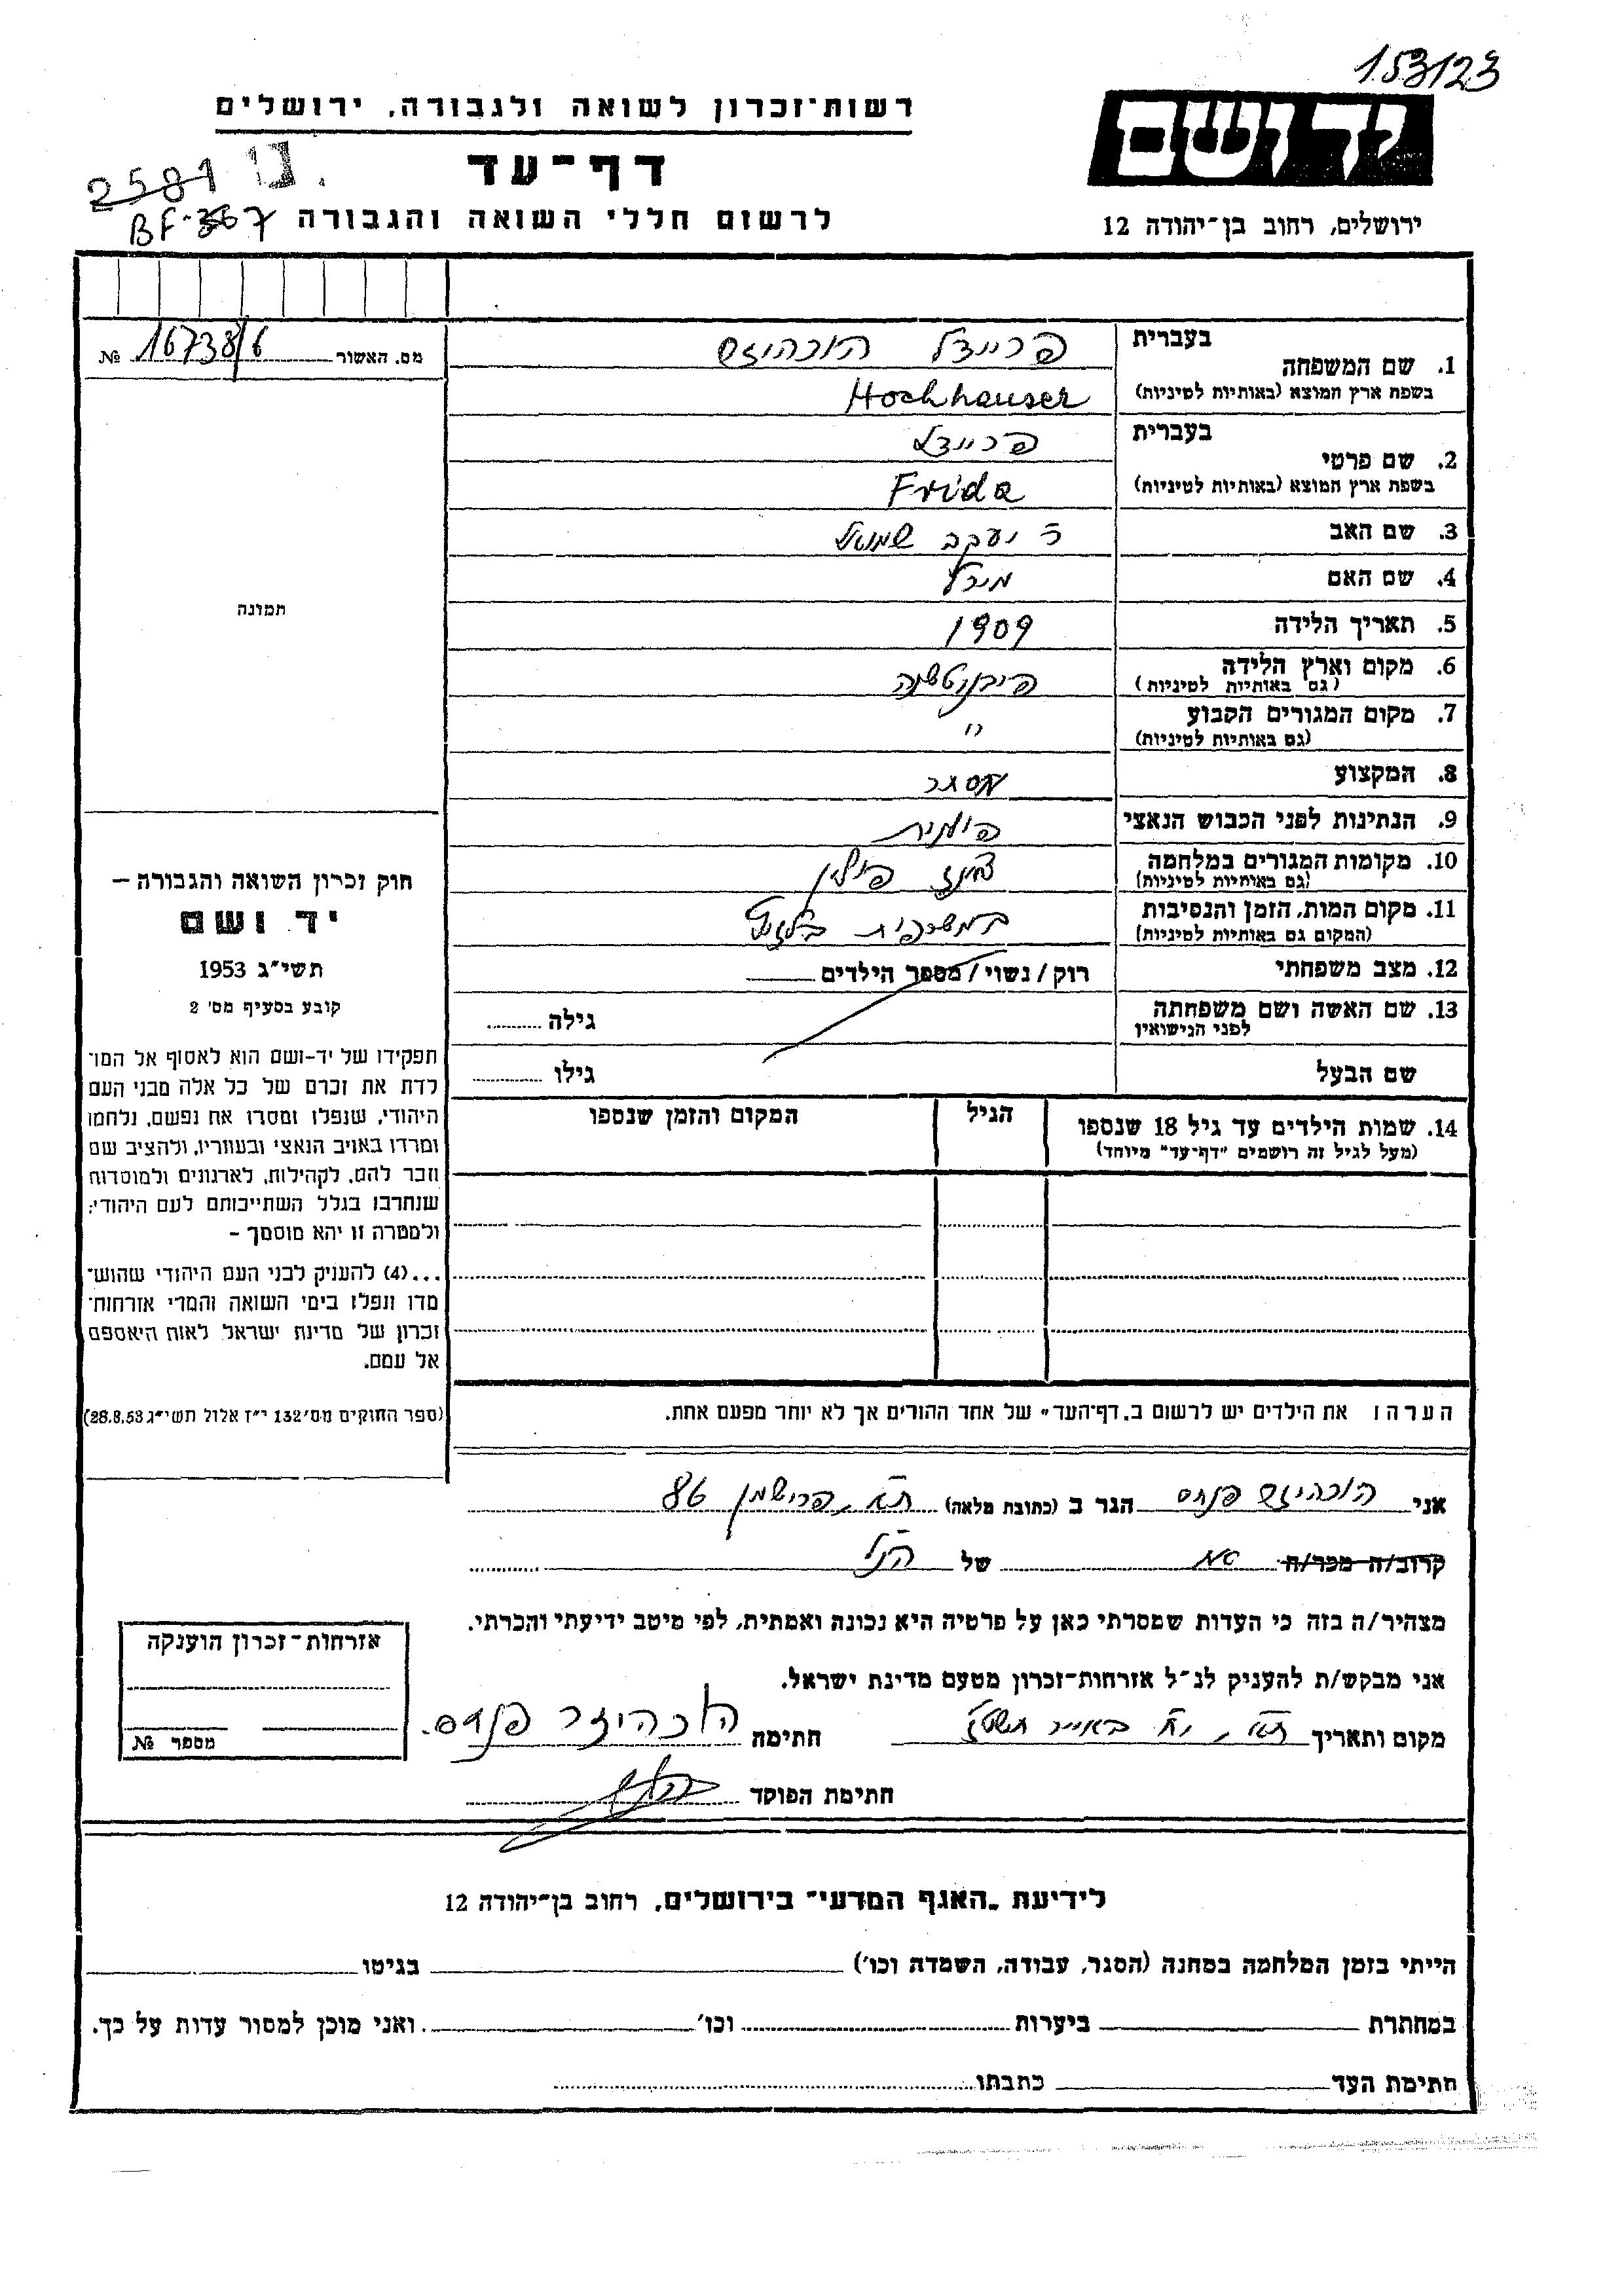 153123
רשות־זכרון לשואה ולגבורה, ירושלים
יד ושם
דף־עד
2581
BF-367
לרשום חללי השואה והגבורה
ירושלים, רחוב בן־יהודה 12
מס. האשור 16738/6 №
1. שם המשפחה
בעברית פריידל הוכהויזר
בשפת ארץ המוצא (באותיות לטיניות) Hochhauser
2. שם פרטי
בעברית פריידל
בשפת ארץ המוצא (באותיות לטיניות) Frida
3. שם האב ר יעקב שמואל
4. שם האם מירל
5. תאריך הלידה 1909
6. מקום וארץ הלידה
(גם באותיות לטיניות)
7. מקום המגורים הקבוע "
(גם באותיות לטיניות)
8. המקצוע
9. הנתינות לפני הכבוש הנאצי פולנית
10. מקומות המגורים במלחמה פולין
(גם באותיות לטיניות)
11. מקום המות, הזמן והנסיבות במשרפות בלזיץ
(המקום גם באותיות לטיניות)
12. מצב משפחתי רוק/נשוי/מספר הילדים
13. שם האשה ושם משפחתה גילה
לפני הנישואין
שם הבעל גילו
14. שמות הילדים עד גיל 18 שנספו הגיל המקום והזמן שנספו
(מעל לגיל זה רושמים "דף־עד" מיוחד)
הערה: את הילדים יש לרשום ב„דף־העד" של אחד ההורים אך לא יותר מפעם אחת.
תמונה
חוק זכרון השואה והגבורה —
יד ושם
תשי"ג 1953
קובע בסעיף מס' 2
תפקידו של יד-ושם הוא לאסוף אל המו־
לדת את זכרם של כל אלה מבני העם
היהודי, שנפלו ומסרו את נפשם, נלחמו
ומרדו באויב הנאצי ובעוזריו, ולהציב שם
וזכר להם, לקהילות, לארגונים ולמוסדות
שנחרבו בגלל השתייכותם לעם היהודי;
ולמטרה זו יהא מוסמך –
...(4) להעניק לבני העם היהודי שהוש־
מדו ונפלו בימי השואה והמרי אזרחות־
זכרון של מדינת ישראל לאות היאספם
אל עמם.
(ספר החוקים מס' 132 י"ז אלול תשי"ג 28.8.53)
אני הוכהויזר פנחס הגר ב (כתובת מלאה) ת"א, פרישמן 86
קרוב/ה מכר/ה אח של הנ"ל
מצהיר/ה בזה כי העדות שמסרתי כאן על פרטיה היא נכונה ואמתית, לפי מיטב ידיעתי והכרתי.
אני מבקש/ת להעניק לנ"ל אזרחות-זכרון מטעם מדינת ישראל.
מקום ותאריך ת"א, י"ח באייר תשט"ז חתימה הוכהויזר פנחס.
חתימת הפוקד
אזרחות-זכרון הוענקה
מספר №
לידיעת „האגף המדעי" בירושלים, רחוב בן־יהודה 12
הייתי בזמן המלחמה במחנה (הסגר, עבודה, השמדה וכו') בגיטו
במחתרת ביערות וכו' ואני מוכן למסור עדות על כך.
חתימת העד כתבתו